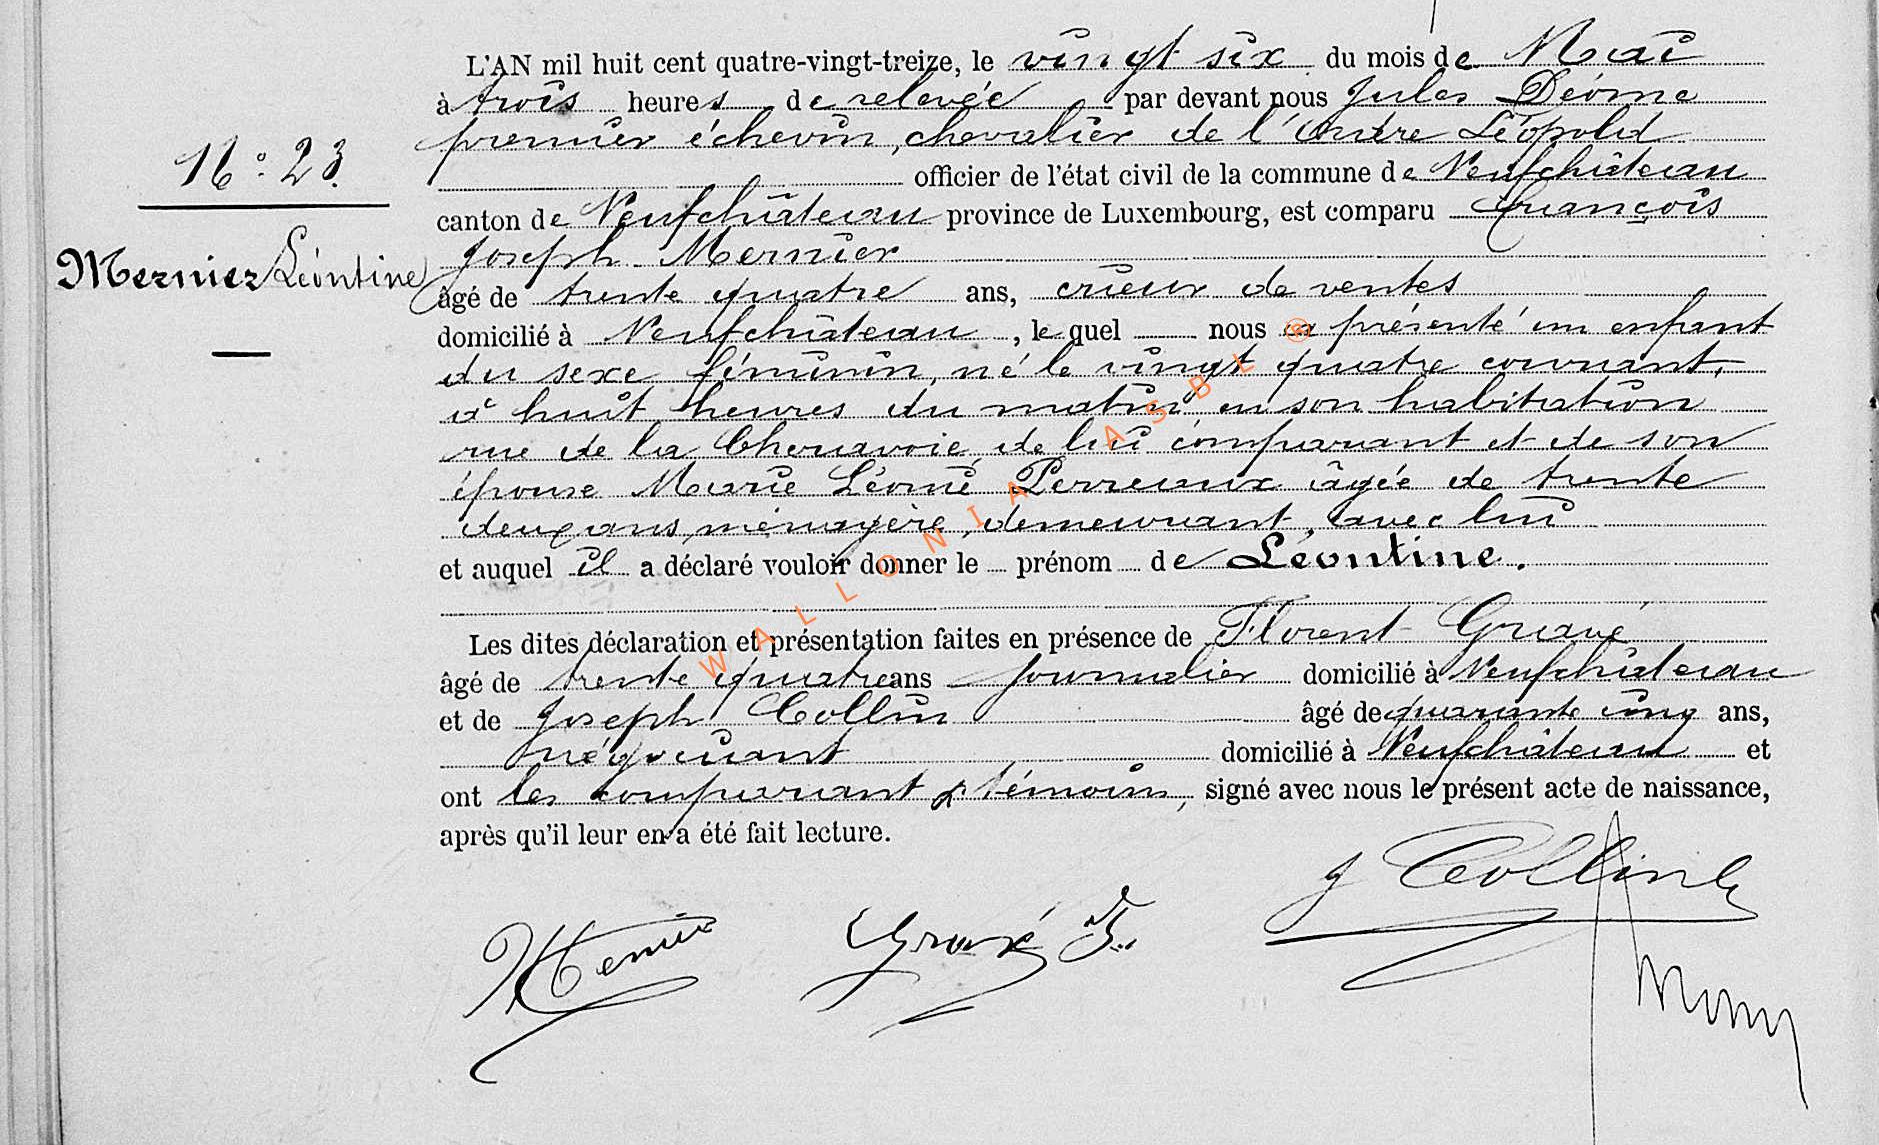 L'AN mil huit cent quatre-vingt-treize, le vingt six du mois de Mai
à trois heures de relevée par devant nous Jules
premier échevin, chevalier de l'Ordre Léopold
N° 23.
officier de l'état civil de la commune de Neufchâteau
canton de Neufchâteau province de Luxembourg, est comparu François
Mernier Léontine
Joseph Mernier
âgé de trente quatre ans, crieur de ventes
domicilié à Neufchâteau, le quel nous a présenté un enfant
du sexe féminin, né le vingt quatre courant,
à huit heures du matin en son habitation
rue de la de lui comparant et de son
épouse Marie Léonie Perreaux âgée de trente
deux ans, ménagère, demeurant avec lui
et auquel il a déclaré vouloir donner le prénom de Léontine.
Les dites déclaration et présentation faites en présence de Florent
âgé de trente quatre ans journalier domicilié à Neufchâteau
et de Joseph Collin âgé de quarante cinq ans,
négociant domicilié à Neufchâteau et
ont les comparant et témoins, signé avec nous le présent acte de naissance,
après qu'il leur en a été fait lecture.
J Collin
Mernier
WALLONIA ASBL ®